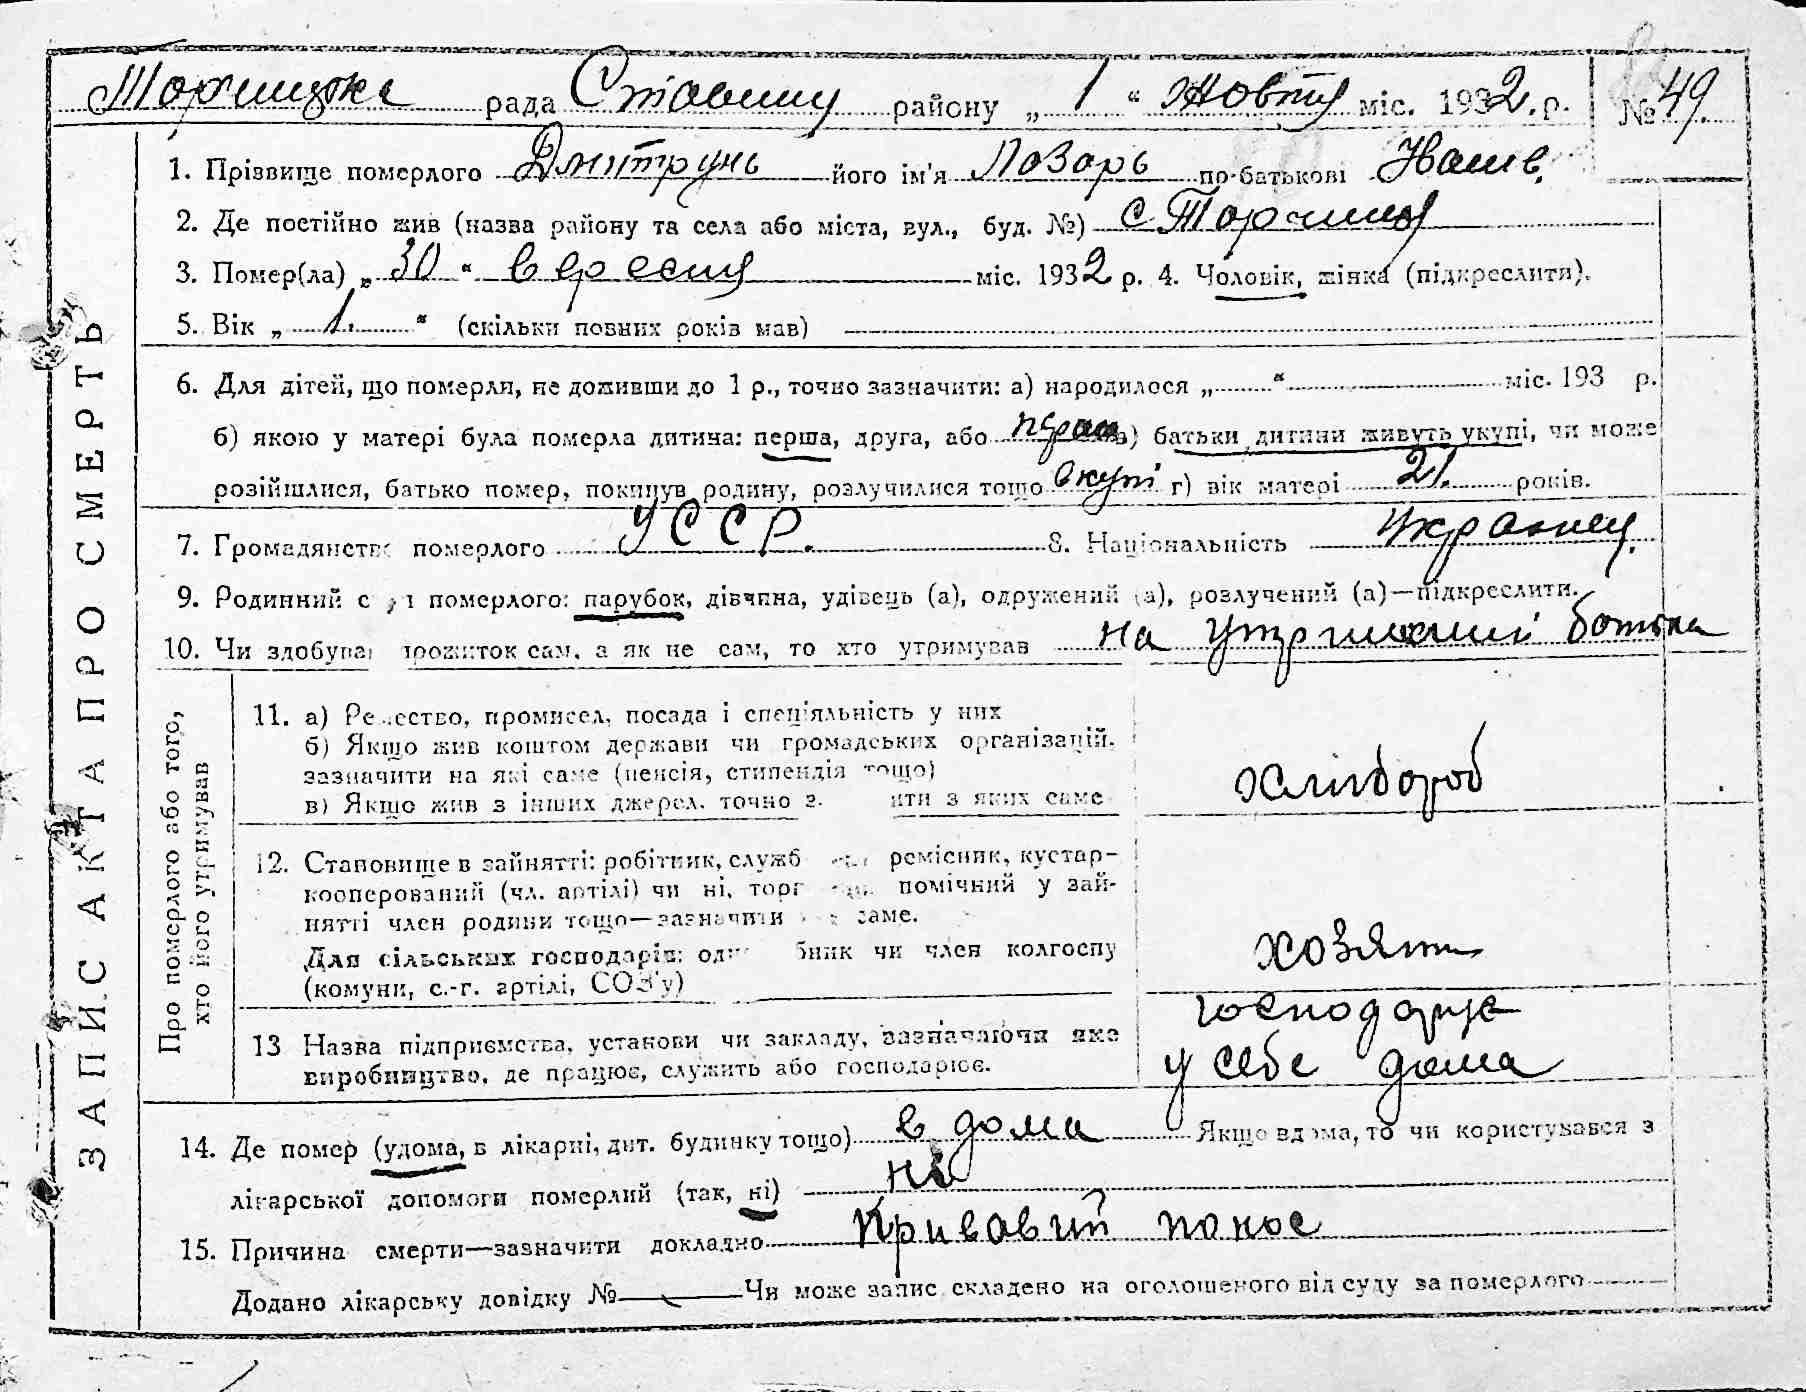 Торчицка рада Ставищ району „ 1 “ Жовтя міс. 1932 р. № 49.
1. Прізвище померлого Дмитрунь його ім'я Лазорь по-батькові
2. Де постійно жив (назва району та села або міста, вул., буд. №) с Торчиця
3. Помер(ла) „ 30 “ вересня міс. 1932 р. 4. Чоловік, жінка (підкреслити).
5. Вік „ 1. “ (скільки повних років мав)
6. Для дітей, що померли, не доживши до 1 р., точно зазначити: а) народилося „ “ міс. 193 р.
б) якою у матері була померла дитина: перша, друга, або перша в) батьки дитини живуть укупі, чи може
розійшлися, батько помер, покинув родину, розлучилися тощо вкупі г) вік матері 21. років.
7. Громадянство померлого УССР. 8. Національність украинец.
9. Родинний с і померлого: парубок, дівчина, удівець (а), одружений (а), розлучений (а)—підкреслити.
10. Чи здобував прожиток сам, а як не сам, то хто утримував на утриманий батька
ЗАПИС АКТА ПРО СМЕРТЬ
Про померлого або того,
хто його утримував
11. а) Ремество, промисел, посада і спеціяльність у них
б) Якщо жив коштом держави чи громадських організацій,
зазначити на які саме (пенсія, стипендія тощо)
в) Якщо жив з інших джерел, точно з ити з яких саме
хлибороб
12. Становище в зайнятті: робітник, служб ремісник, кустар-
кооперований (чл. артілі) чи ні, торг помічний у зай-
нятті член родини тощо—зазначити саме.
Для сільських господарів: од бник чи член колгоспу
(комуни, с.-г. артілі, СОЗ'у)
хозяин
13 Назва підприємства, установи чи закладу, зазначаючи яке
виробництво, де працює, служить або господарює.
господарює
у себе дома
14. Де помер (удома, в лікарні, дит. будинку тощо) в дома Якщо вдома, то чи користувався з
лікарської допомоги померлий (так, ні) ні
15. Причина смерти—зазначити докладно Кривавий понос
Додано лікарську довідку № Чи може запис складено на оголошеного від суду за померлого